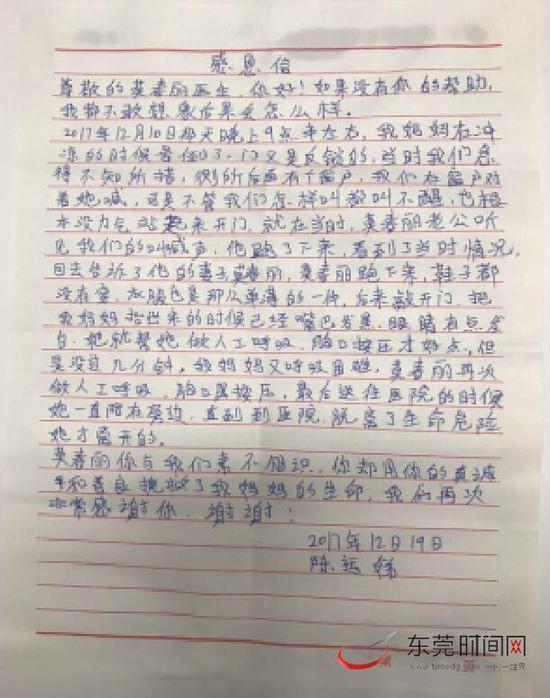 感恩信
尊敬的莫春丽医生、你好！如果没有你的帮助，
我都不敢想象后果会怎么样。
2017年12月10日那天晚上9点半左右，我妈妈在冲
凉的时候晕倒了、门又是反锁的，当时我们急
得不知所措，厕所后面有个窗户，我们在窗户对
着她喊，可是不管我们怎样叫都叫不醒，也根
本没力气站起来开门，就在当时，莫春丽老公听
见我们的叫喊声，他跑了下来，看到了当时情况，
回去告诉了他的妻子莫春丽，莫春丽跑下来，鞋子都
没有穿、衣服也是那么单薄的一件，后来敲开门，把
我妈妈抬出来的时候已经嘴巴发黑、眼睛有点发
白，她就帮她做人工呼吸、胸口按压才好点，但
是没过几分钟，我妈妈又呼吸困难，莫春丽再次
做人工呼吸、胸口按压，最后送往医院的时候
她一直陪在旁边，直到到医院，脱离了生命危险
她才离开的。
莫春丽你与我们素不相识、你却用你的
和善良挽救了我妈妈的生命，我们再次
非常感谢你、谢谢！
2017年12月19日
陈
东莞时间网
www.timedg.com 一小一世界